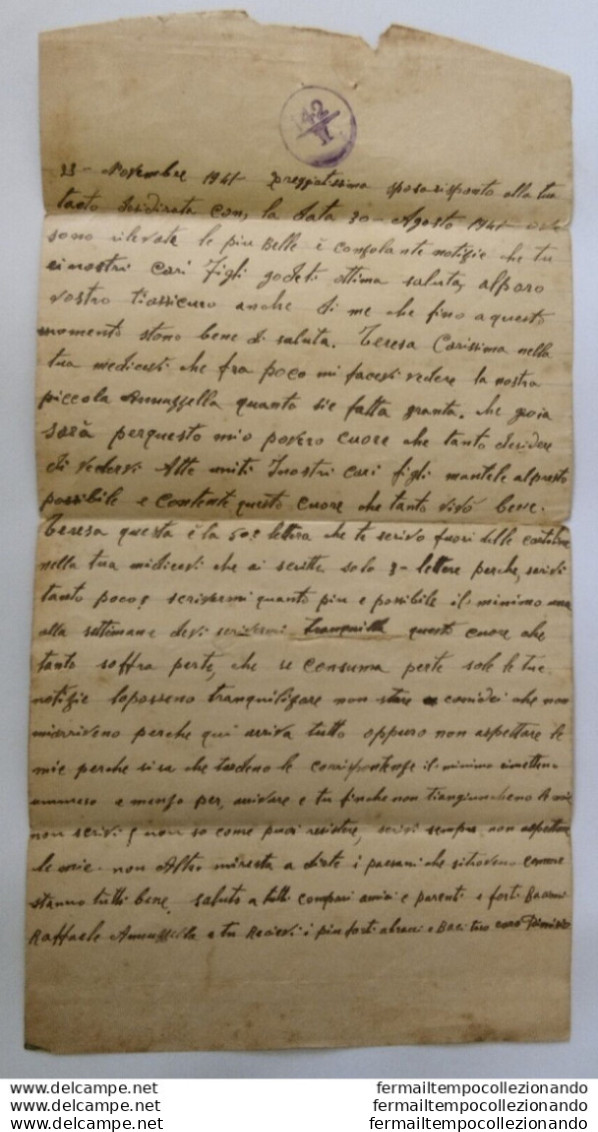 142
II
23 - Novembre 1941 - preggiatissima sposa risponto alla tua
tanto disidirata con, la data 30 - Agosto 1941
sono rilevate le piu Belle è consolante notizie che tu
e inostri cari figli godeti ottima saluta, alparo
vostro tiassicuro anche di me che fino a questo
momento stono bene di saluta. Teresa Carissima nella
tua medicesti che fra poco mi facevi vedere la nostra
piccola quanto sie fatta granta. che gioia
sarà perquesto mio povero cuore che tanto desidere
di vedervi uniti Inostri cari figli alpresto
possibile e contente questo cuore che tanto vivò bene.
Teresa questa è la 50e lettera che te scrivo fuori delle cartoline
nella tua midicesti che ai scritto solo 3 - lettere perche, scrivi
tanto poco, scriveremi quanto piu e posibile il minimo una
alla settimane devi scrivermi questo cuore che
tanto soffra perte, che se consuma perte sole le tue
notizie loposseno tranquilizare non stare che non
miarriveno perche qui arriva tutto oppuro non aspettare le
mie perche si sa che tardeno le corrispontenze il minimo cimetteno
e menzo per, arrivare e tu finche non tiangiuncheno le mie
non scrivi, non so come puoi resistere, scrivi sempre non aspettare
le mie. non Altro miresta a dirte i paesani che sitroveno
stanno tutti bene. saluto a tutti compari amici e parenti e forti Bacioni
Raffaele e tu Recievi i piu forti abraci e Baci tuo caro
www.delcampe.net
fermailtempocollezionando
www.delcampe.net
fermailtempocollezionando
www.delcampe.net
fermailtempocollezionando